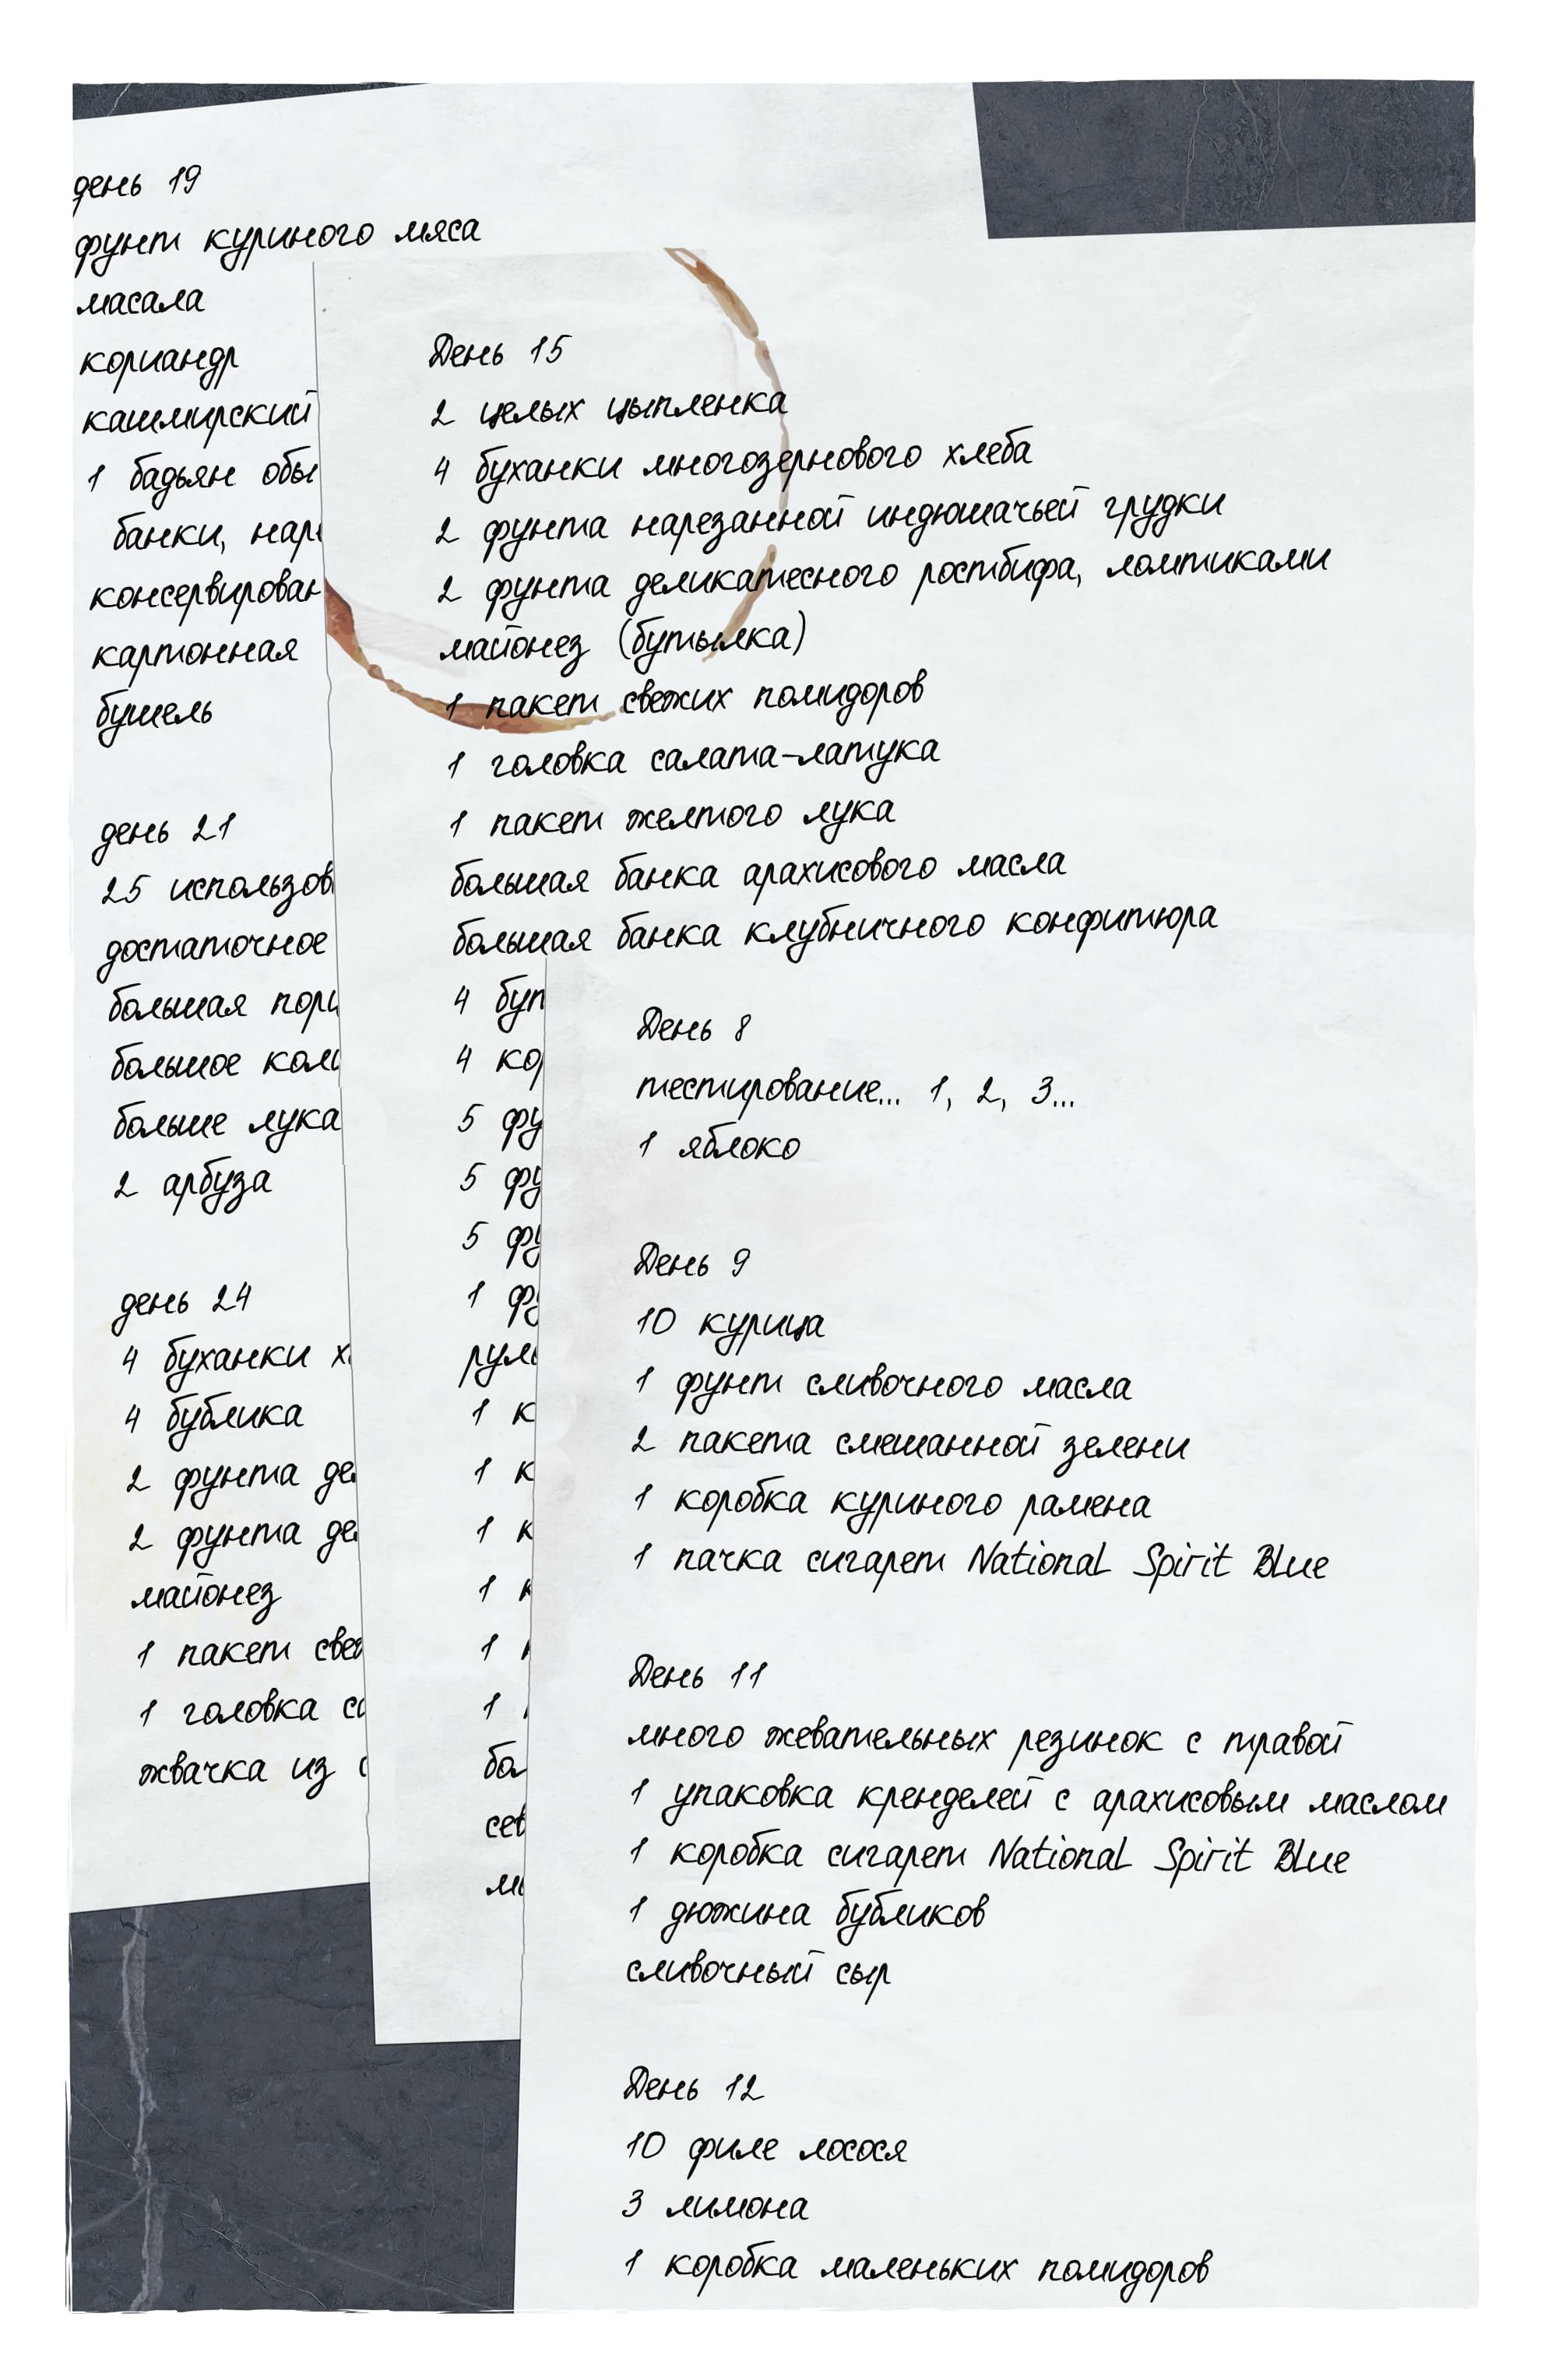 день 19
фунт куриного мяса
масала
кориандр
кашмирский
1 бадьян
банки,
картонная
бушель
день 21
25
достаточное
большая
большое
больше лука
2 арбуза
день 24
4 буханки
4 бублика
2 фунта
2 фунта
майонез
1 пакет
1 головка
жвачка из
День 15
2 целых цыпленка
4 буханки многозернового хлеба
2 фунта нарезанной индюшачьей грудки
2 фунта деликатесного ростбифа, ломтиками
майонез (бутылка)
1 пакет свежих помидоров
1 головка салата-латука
1 пакет желтого лука
большая банка арахисового масла
большая банка клубничного конфитюра
4
4
5
5
5
1
1
1
1
1
1
1
День 8
тестирование... 1, 2, 3...
1 яблоко
День 9
10 курица
1 фунт сливочного масла
2 пакета смешанной зелени
1 коробка куриного рамена
1 пачка сигарет National Spirit Blue
День 11
много жевательных резинок с травой
1 упаковка кренделей с арахисовым маслом
1 коробка сигарет National Spirit Blue
1 дюжина бубликов
сливочный сыр
День 12
10 филе лосося
3 лимона
1 коробка маленьких помидоров